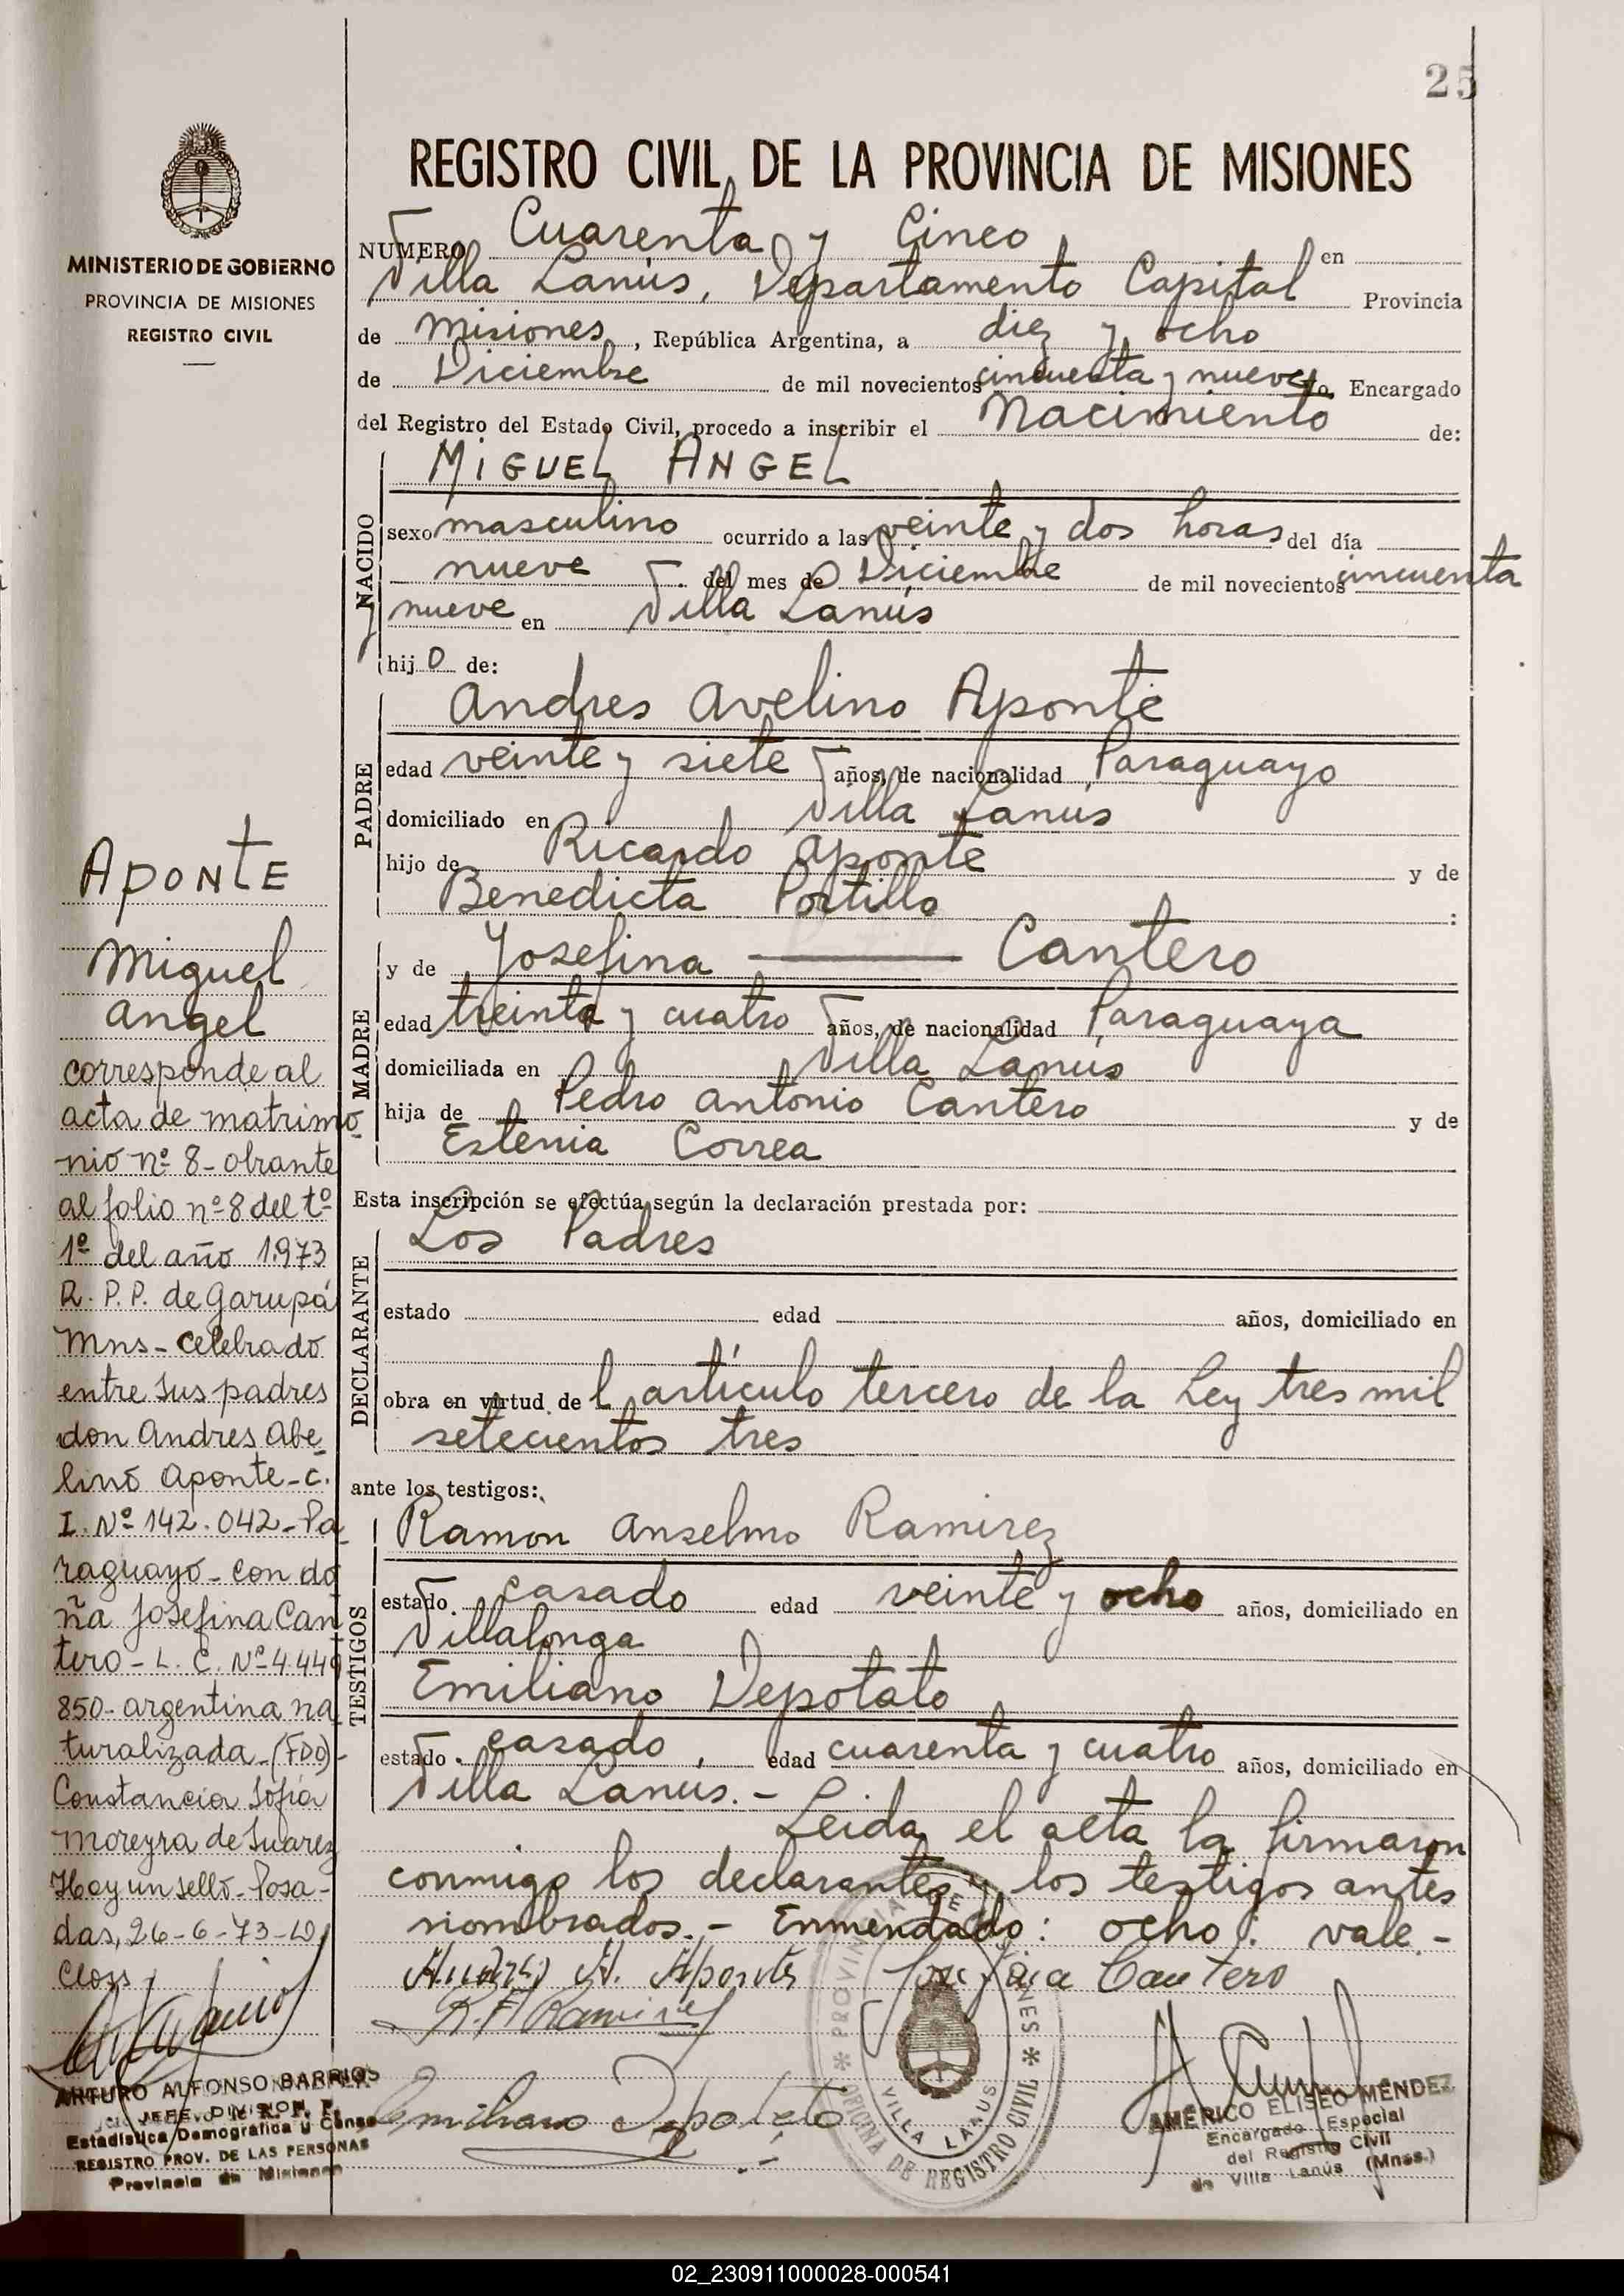 25
MINISTERIO DE GOBIERNO
PROVINCIA DE MISIONES
REGISTRO CIVIL
REGISTRO CIVIL DE LA PROVINCIA DE MISIONES
NUMERO Cuarenta y Cinco en
Villa Lanús, Departamento Capital Provincia
de Misiones, República Argentina, a diez y ocho
de Diciembre de mil novecientos cincuenta y nueve Yo, Encargado
del Registro del Estado Civil, procedo a inscribir el Nacimiento de:
MIGUEL ANGEL
NACIDO
sexo masculino ocurrido a las veinte y dos horas del día
nueve del mes de Diciembre de mil novecientos cincuenta
y nueve en Villa Lanús
hijo de:
PADRE
Andres Avelino Aponte
edad veinte y siete años, de nacionalidad Paraguayo
domiciliado en Villa Lanús
hijo de Ricardo Aponte y de
Benedicta Portillo :
MADRE
y de Josefina — Cantero
edad treinta y cuatro años, de nacionalidad Paraguaya
domiciliada en Villa Lanús
hija de Pedro Antonio Cantero y de
Estenia Correa
Esta inscripción se efectúa según la declaración prestada por:
DECLARANTE
Los Padres
estado edad años, domiciliado en
obra en virtud del artículo tercero de la Ley tres mil
setecientos tres
ante los testigos:
TESTIGOS
Ramon Anselmo Ramirez
estado casado edad veinte y ocho años, domiciliado en
Villalonga
Emiliano Depotato
estado casado, edad cuarenta y cuatro años, domiciliado en
Villa Lanús.-
Leida el acta la firmaron
conmigo los declarantes y los testigos antes
nombrados.- Enmendado: ocho: vale.-
Andres A. Aponte Josefina Cantero
R. A. Ramirez
Emiliano Depotato
PROVINCIA DE MISIONES * OFICINA DE REGISTRO CIVIL *
VILLA LANUS
AMERICO ELISEO MENDEZ
Encargado Especial
del Registro Civil
de Villa Lanús (Mnes.)
APONTE
Miguel
Angel
corresponde al
acta de matrimo
nio nº 8- obrante
al folio nº 8 del tº
1º del año 1.973
R. P. P. de Garupá
Mns- celebrado
entre sus padres
don Andres Abe
lino Aponte- C.
I. Nº 142.042- Pa
raguayo- con do
ña Josefina Can
tero- L. C. Nº 4.449
850- argentina na
turalizada- (FDO)-
Constancia Sofia
Moreyra de Suarez
Hay un sello- Posa-
das, 26-6-73-
Closs
ARTURO ALFONSO BARRIOS
JEFE DIVISION
Estadística Demográfica y Censo
REGISTRO PROV. DE LAS PERSONAS
Provincia de Misiones
02_230911000028-000541